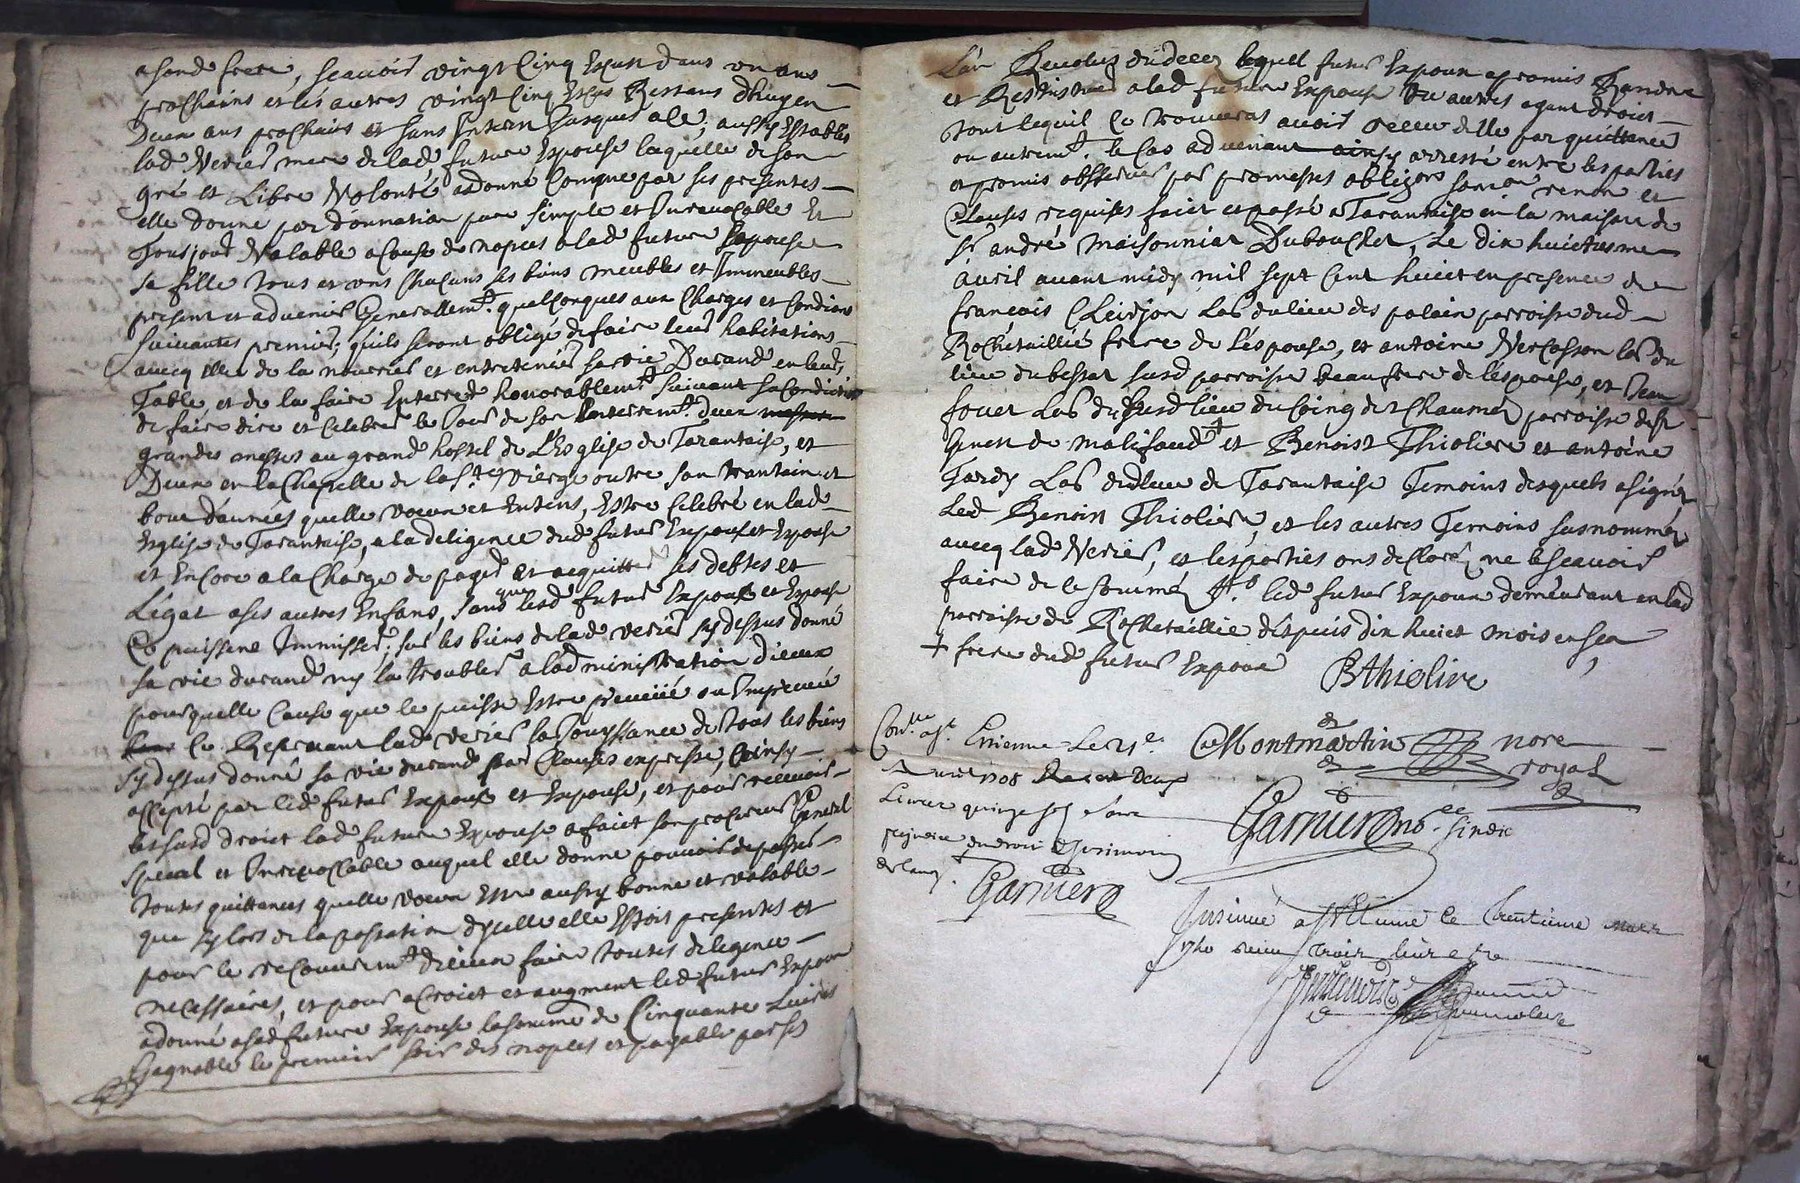 asond frere, scavoir vingt cinq Escus dans un ans
prochains et les autres vingt cinq Escus Restans dhuy en
Deux ans prochains et sans Interin jusques a ce, aussy establye
lad Verier mere de lad future Expouse laquelle de son
gré et Libre Volonté adonné Comme par ses presentes
elle donne par donnation pure simple et Inrevocable Et
Tousjours Valable a Cause de nopces a lad future Expouse
sa fille tous et uns Chacuns ses biens meubles et Immeubles
present et advenir Generallemt. quelConques aux Charges et Condions
suivantes premier, quils seront obligé de faire leur habitations
avecq elle de la nourrir et entretenir sa vie Durand en leur
Table et de la faire Enterred honorablemt. suivant sa Condition
de faire dire et Celebrer le Jour de son Enterremt. deux
grandes messes au grand hostel de L'Esglise de Tarantaise, et
Deux en la Chapelle de la ste. Vierge outre son trantain et
bout dannées quelle veut et Entent, Estre Celebré en lad
Esglise de Tarantaise, a la deligence dud futur Expoux et Expouse
et Encore a la Charge de payer et acquitter ses debtes et
Légat a ses autres Enfans, sans que lesd futur Expoux et Expouse
Ce puissent Immisser sur les biens de lad verier sy dessus donné
sa vie durand ny la troubler a lad ministration dieux
pour quelle Cause que le puisse Estre preveüé ou Impreveüé
Ce Reservant lad verier la Jouyssance de tous les biens
sy dessus donné sa vie durand par Clauses expresse, Ce ainsy
accepté par led futur Expoux et Expouse, et pour recevoir
lesusd droict lad future Expouse a faict son procureur General
special et Inrevoccable auquel elle donne pouvoir de passer
toutes quittances quelle veux Estre aussy bonne et valable
que sy lors de la passation dycelle elle Estoit presentes et
pour le recouvremt. dieux faire toutes diligence
necessaires, et pour acroict et augment led futur Expoux
adonné a sad future Expouse la somme de Cinquante Livres
Gagnable le premier soir des nopces et payable par ses
L'an Revolus du decex lequel futur Expoux a promis Randre
et Restituer a lad future Expouse ou autres ayant droict
tout lequil Ce trouveras avoir receu delle par quittance
ou autremt. le Cas advenant ainsy arresté entre les parties
et promis observer par promesses obligaon. renon et
Clauses requises faict et passé a Tarantaise en la maison de
sr. andré Maisonnial Dubouchet, Le dix huictiesme
avril avant midy mil sept Cent huict en presence de
françois Cleirjon Lab du lieu des palais parroisse dud
Rochetaillié frere de l'éspouse, et antoine Vercasson lab du
lieu du bessat susd parroisse beaufrere de l'espouse, et Jean
fouet Lab du susd lieu du Coing des Chaumes parroisse de st
Genest de malifaud + et Benoist Thiolier et antoine
Tardy Lab dud lieu de Tarantaise Temoins desquels a signéz
Led Benoist Thiolier, et les autres Temoins susnomméz
avecq lad Verier, et les parties ons desClaré ne le scavoir
faire de ce sommé led futur Expoux demeurant en lad
parroisse de Rochetaillie despuis dix huict mois en sea
+ frere dud futur Expoux
BThiolire
Conlle. a st. Etienne Le 21e.
avril 1708 Receu deux
Livres quinze
DeMontmartin nore
royal
Garnier sindic
Garnier
Insinué a st Etienne le trentieme mars
1710 Receu trois livre